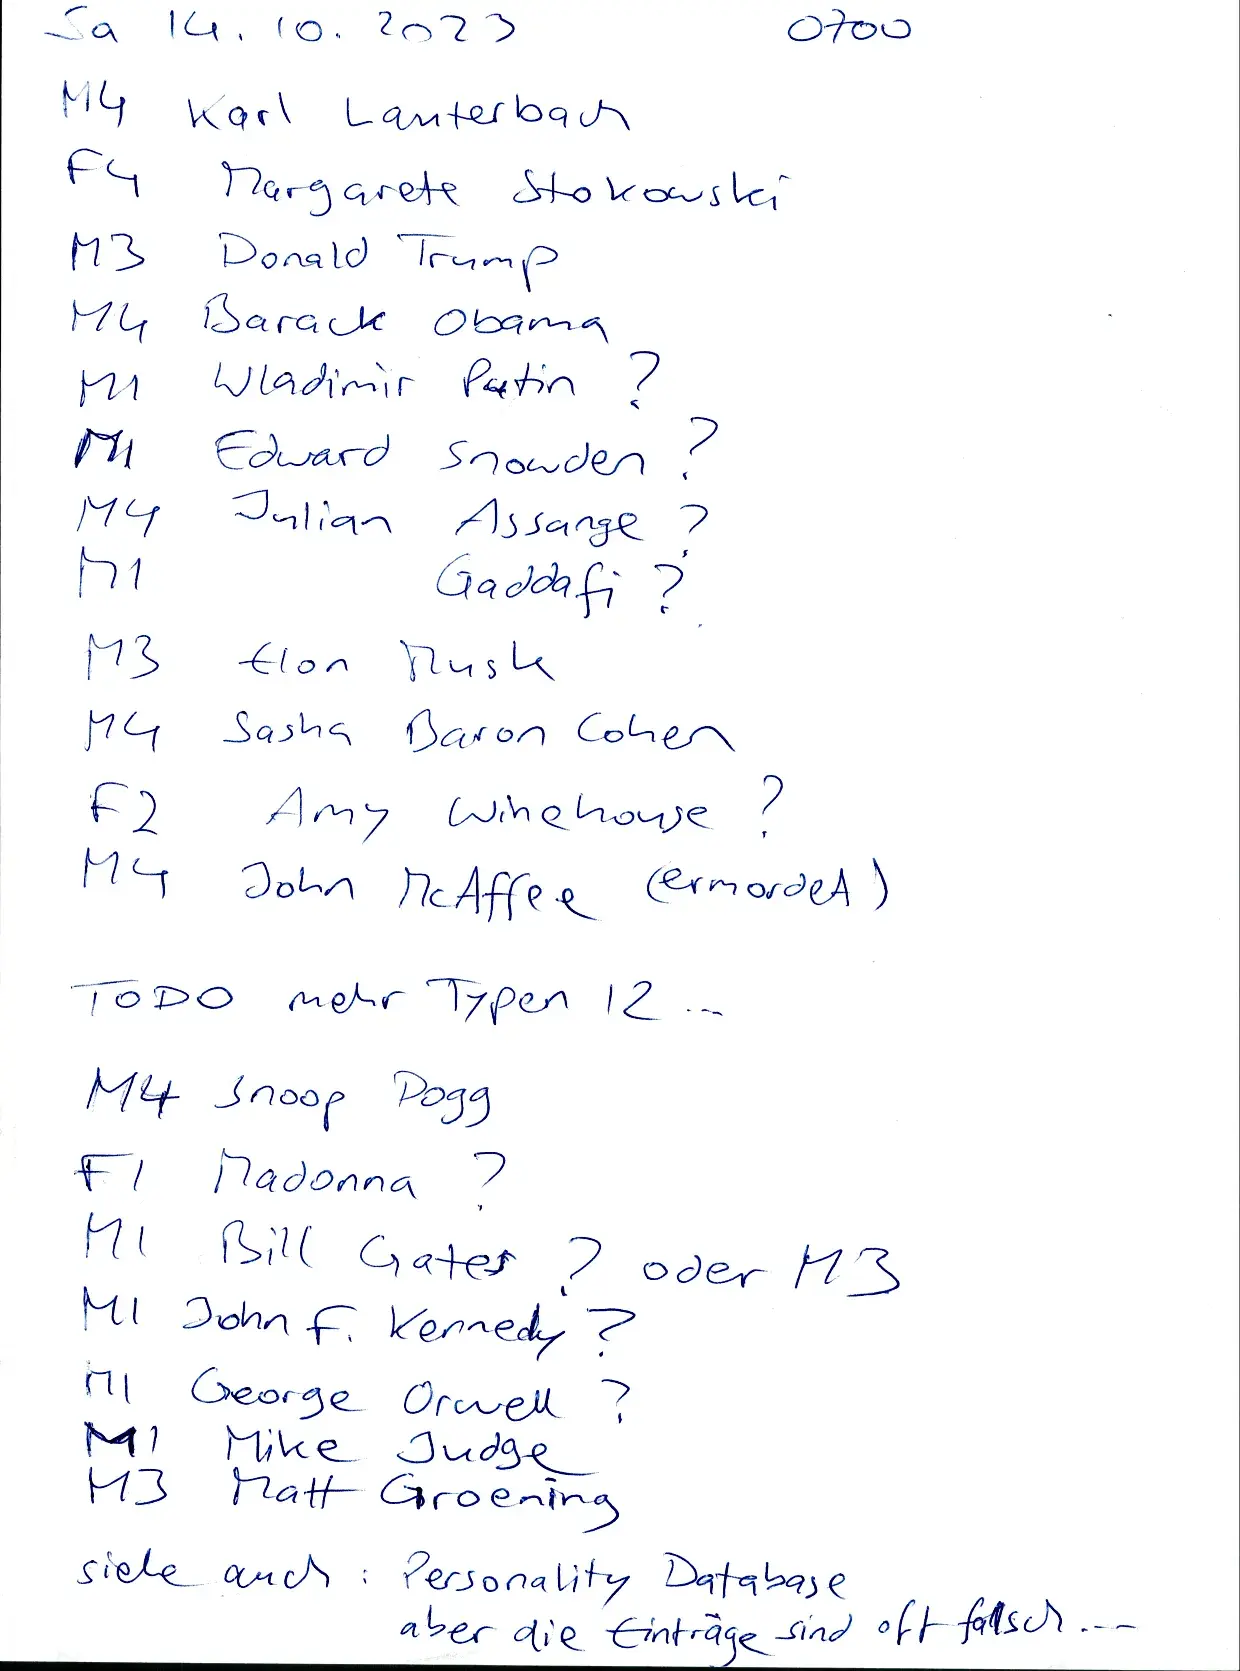 Sa 14.10.2023 0700
M4 Karl Lauterbach
F4 Margarete Stokowski
M3 Donald Trump
M4 Barack Obama
M1 Wladimir Putin ?
M1 Edward Snowden ?
M4 Julian Assange ?
M1 Gaddafi ?
M3 Elon Musk
M4 Sasha Baron Cohen
F2 Amy Winehouse ?
M4 John McAffee (ermordet)
TODO mehr Typen 12 ...
M4 Snoop Dogg
F1 Madonna ?
M1 Bill Gates ? oder M3
M1 John F. Kennedy ?
M1 George Orwell ?
M1 Mike Judge
M3 Matt Groening
siehe auch : Personality Database
aber die Einträge sind oft falsch ...